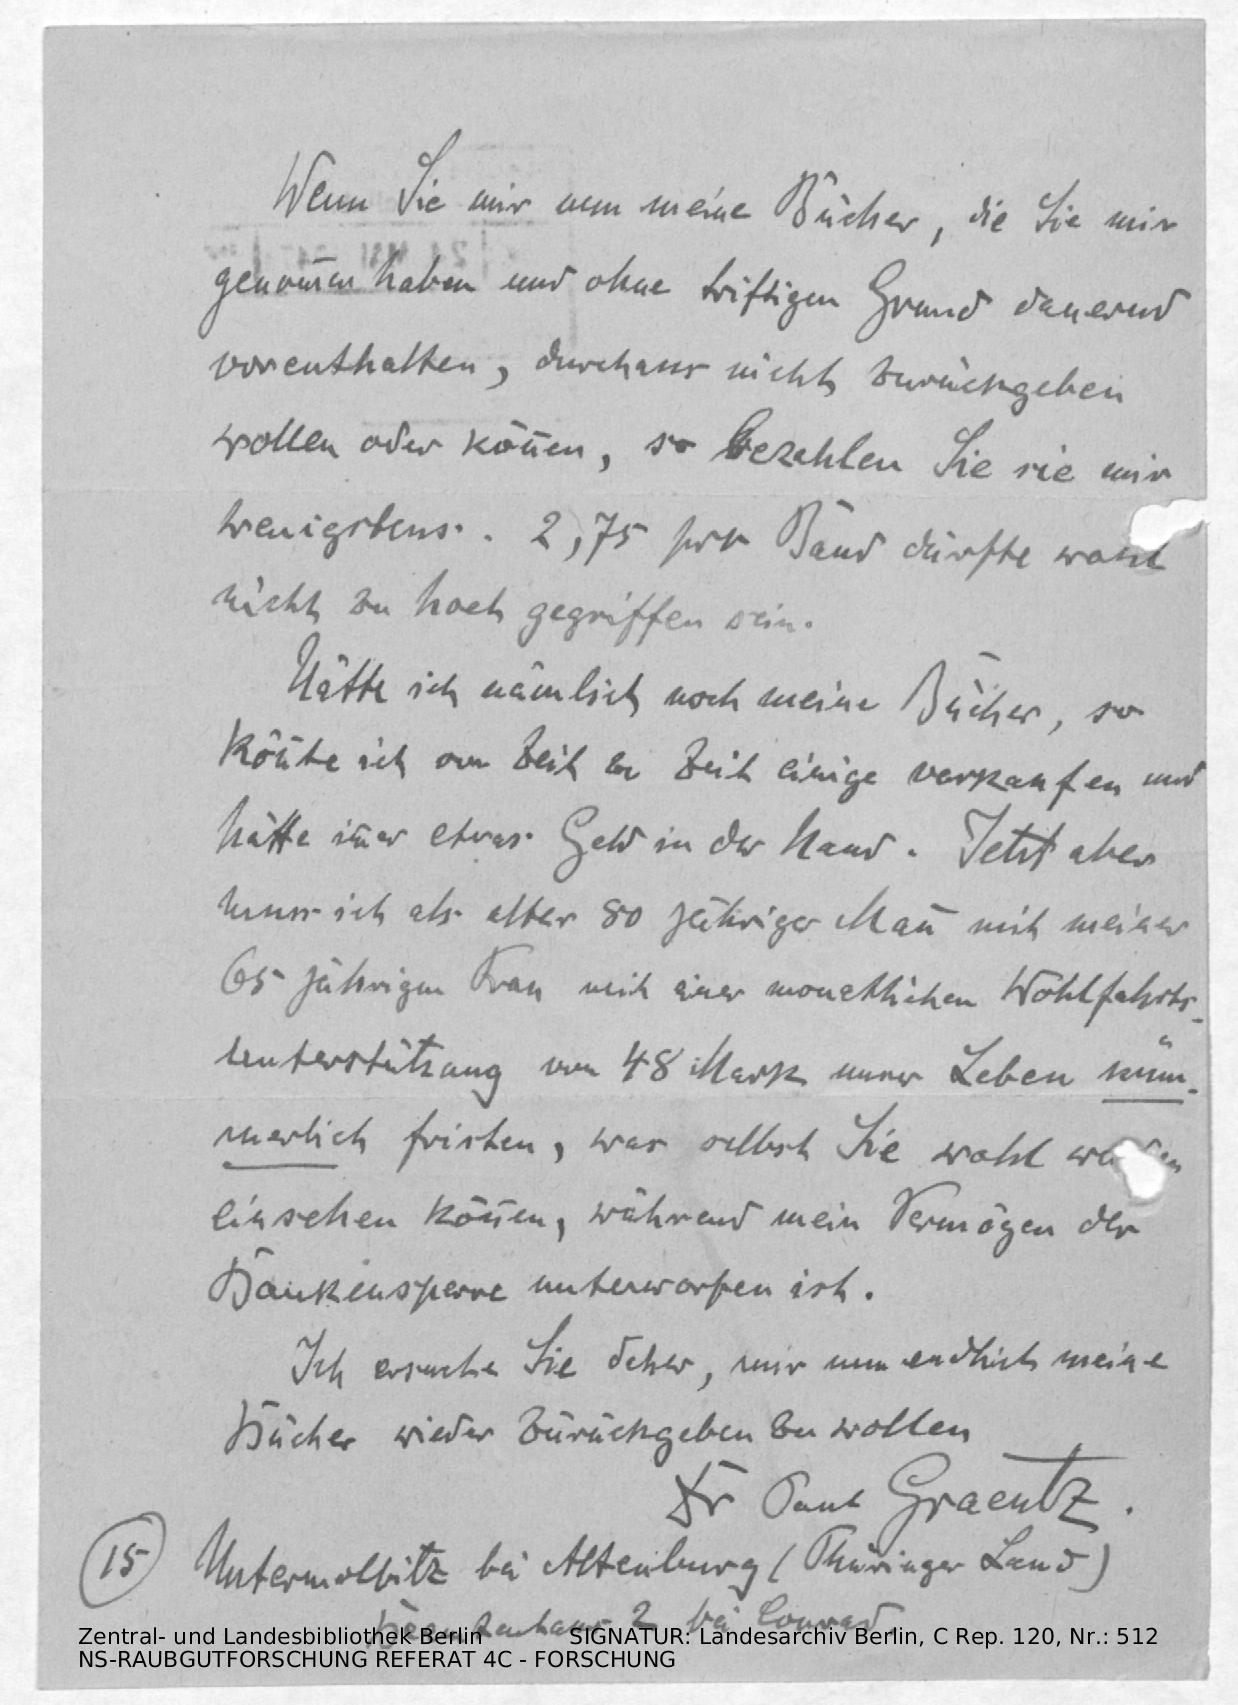 Wenn Sie mir nun meine Bücher, die Sie mir
genom̄en haben und ohne triftigen Grund dauernd
vorenthalten, durchaus nicht zurückgeben
wollen oder kön̄en, so bezahlen Sie sie mir
wenigstens. 2,75 pro Band dürfte wohl
nicht zu hoch gegriffen sein.
Hätte ich nämlich noch meine Bücher, so
kön̄te ich von Zeit zu Zeit einige verkaufen und
hätte im̄er etwas Geld in der Hand. Jetzt aber
muss ich als alter 80 jähriger Man̄ mit meiner
65 jährigen Frau mit einer monatlichen Wohlfahrts-
unterstützung von 48 Mark unser Leben küm-
merlich fristen, was selbst Sie wohl
einsehen kön̄en, während mein Vermögen der
Bankensperre unterworfen ist.
Ich ersuche Sie daher, mir nun endlich meine
Bücher wieder zurückgeben zu wollen
Dr Paul Graentz.
15 Untermolbitz bei Altenburg (Thüringer Land)
2 bei Conrad.
Zentral- und Landesbibliothek Berlin SIGNATUR: Landesarchiv Berlin, C Rep. 120, Nr.: 512
NS-RAUBGUTFORSCHUNG REFERAT 4C - FORSCHUNG